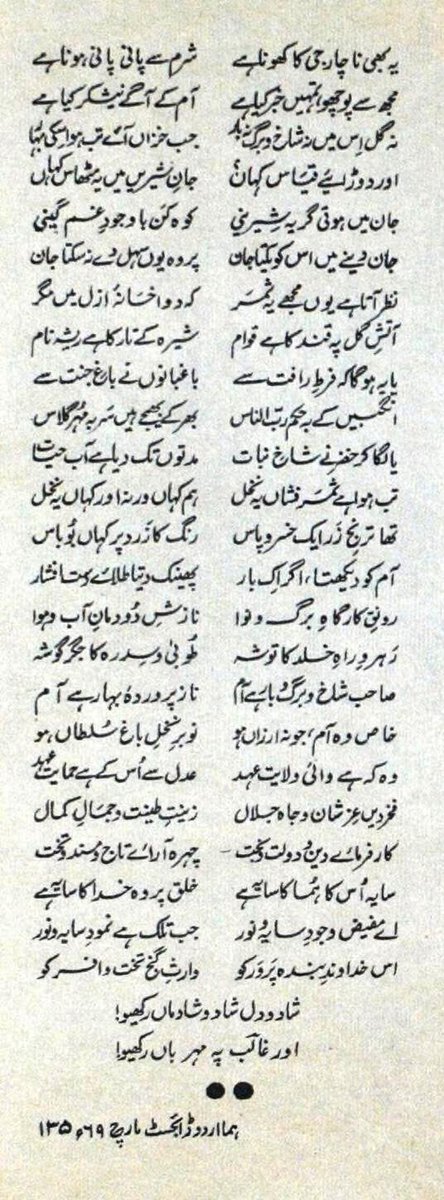 یہ بھی ناچار جی کا کھونا ہے شرم سے پانی پانی ہونا ہے
مجھ سے پوچھو، تمہیں خبر کیا ہے آم کے آگے نیشکر کیا ہے
نہ گل اس میں نہ شاخ و برگ نہ بار جب خزاں آئے تب ہو اسکی بہار
اور دوڑائیے قیاس کہاں؟ جانِ شیریں میں یہ مٹھاس کہاں
جان میں ہوتی گر یہ شیرینی کوہ کن باوجودِ غم گینی
جان دینے میں اس کو یکتا جان پر وہ یوں سہل دے نہ سکتا جان
نظر آتا ہے یوں مجھے یہ ثمر کہ دوا خانۂ ازل میں مگر
آتشِ گل پہ قند کا ہے قوام شیرہ کے تار کا ہے ریشہ نام
یا یہ ہوگا کہ فرطِ رافت سے باغبانوں نے باغِ جنت سے
انگبیں کے بہ حکم ربّ الناس بھر کے بھیجے ہیں سر بہ مُہر گلاس
یا لگا کر خضر نے شاخِ نبات مدتوں تک دیا ہے آب حیات
تب ہوا ہے ثمر فشاں یہ نخل ہم کہاں ورنہ اور کہاں یہ نخل
تھا ترنجِ زر ایک خسرو پاس رنگ کا زرد پر کہاں بُو باس
آم کو دیکھتا، اگر اک بار پھینک دیتا طلائے دست افشار
رونقِ کارگاہِ برگ و نوا نازشِ دُودمانِ آب و ہوا
رہروِ راہِ خلد کا توشہ طُوبیٰ و سدرہ کا جگر گوشہ
صاحب شاخ و برگ و بار ہے آم ناز پروردۂ بہار ہے آم
خاص وہ آم، جو نہ ارزاں ہو نوبرِ نخلِ باغِ سُلطاں ہو
وہ کہ ہے والیٔ ولایت عہد عدل سے اُس کے ہے حمایت عہد
فخرِ دیں عزِ شان و جاہ جلال زینتِ طینت و جمالِ کمال
کارفرمائے دین و دولت و بخت چہرہ آرائے تاج و مسند و تخت
سایہ اُس کا ہُما کا سایہ ہے خلق پر وہ خدا کا سایہ ہے
اے مفیض وجودِ سایہ و نور جب تلک ہے نمودِ سایہ و نور
اس خداوندِ بندہ پَرور کو وارثِ گنج و تخت و افسر کو
شاد و دل شاد و شادماں رکھیو!
اور غالب پہ مہرباں رکھیو!
ہما اردو ڈائجسٹ مارچ ۶۹ء ۱۳۵